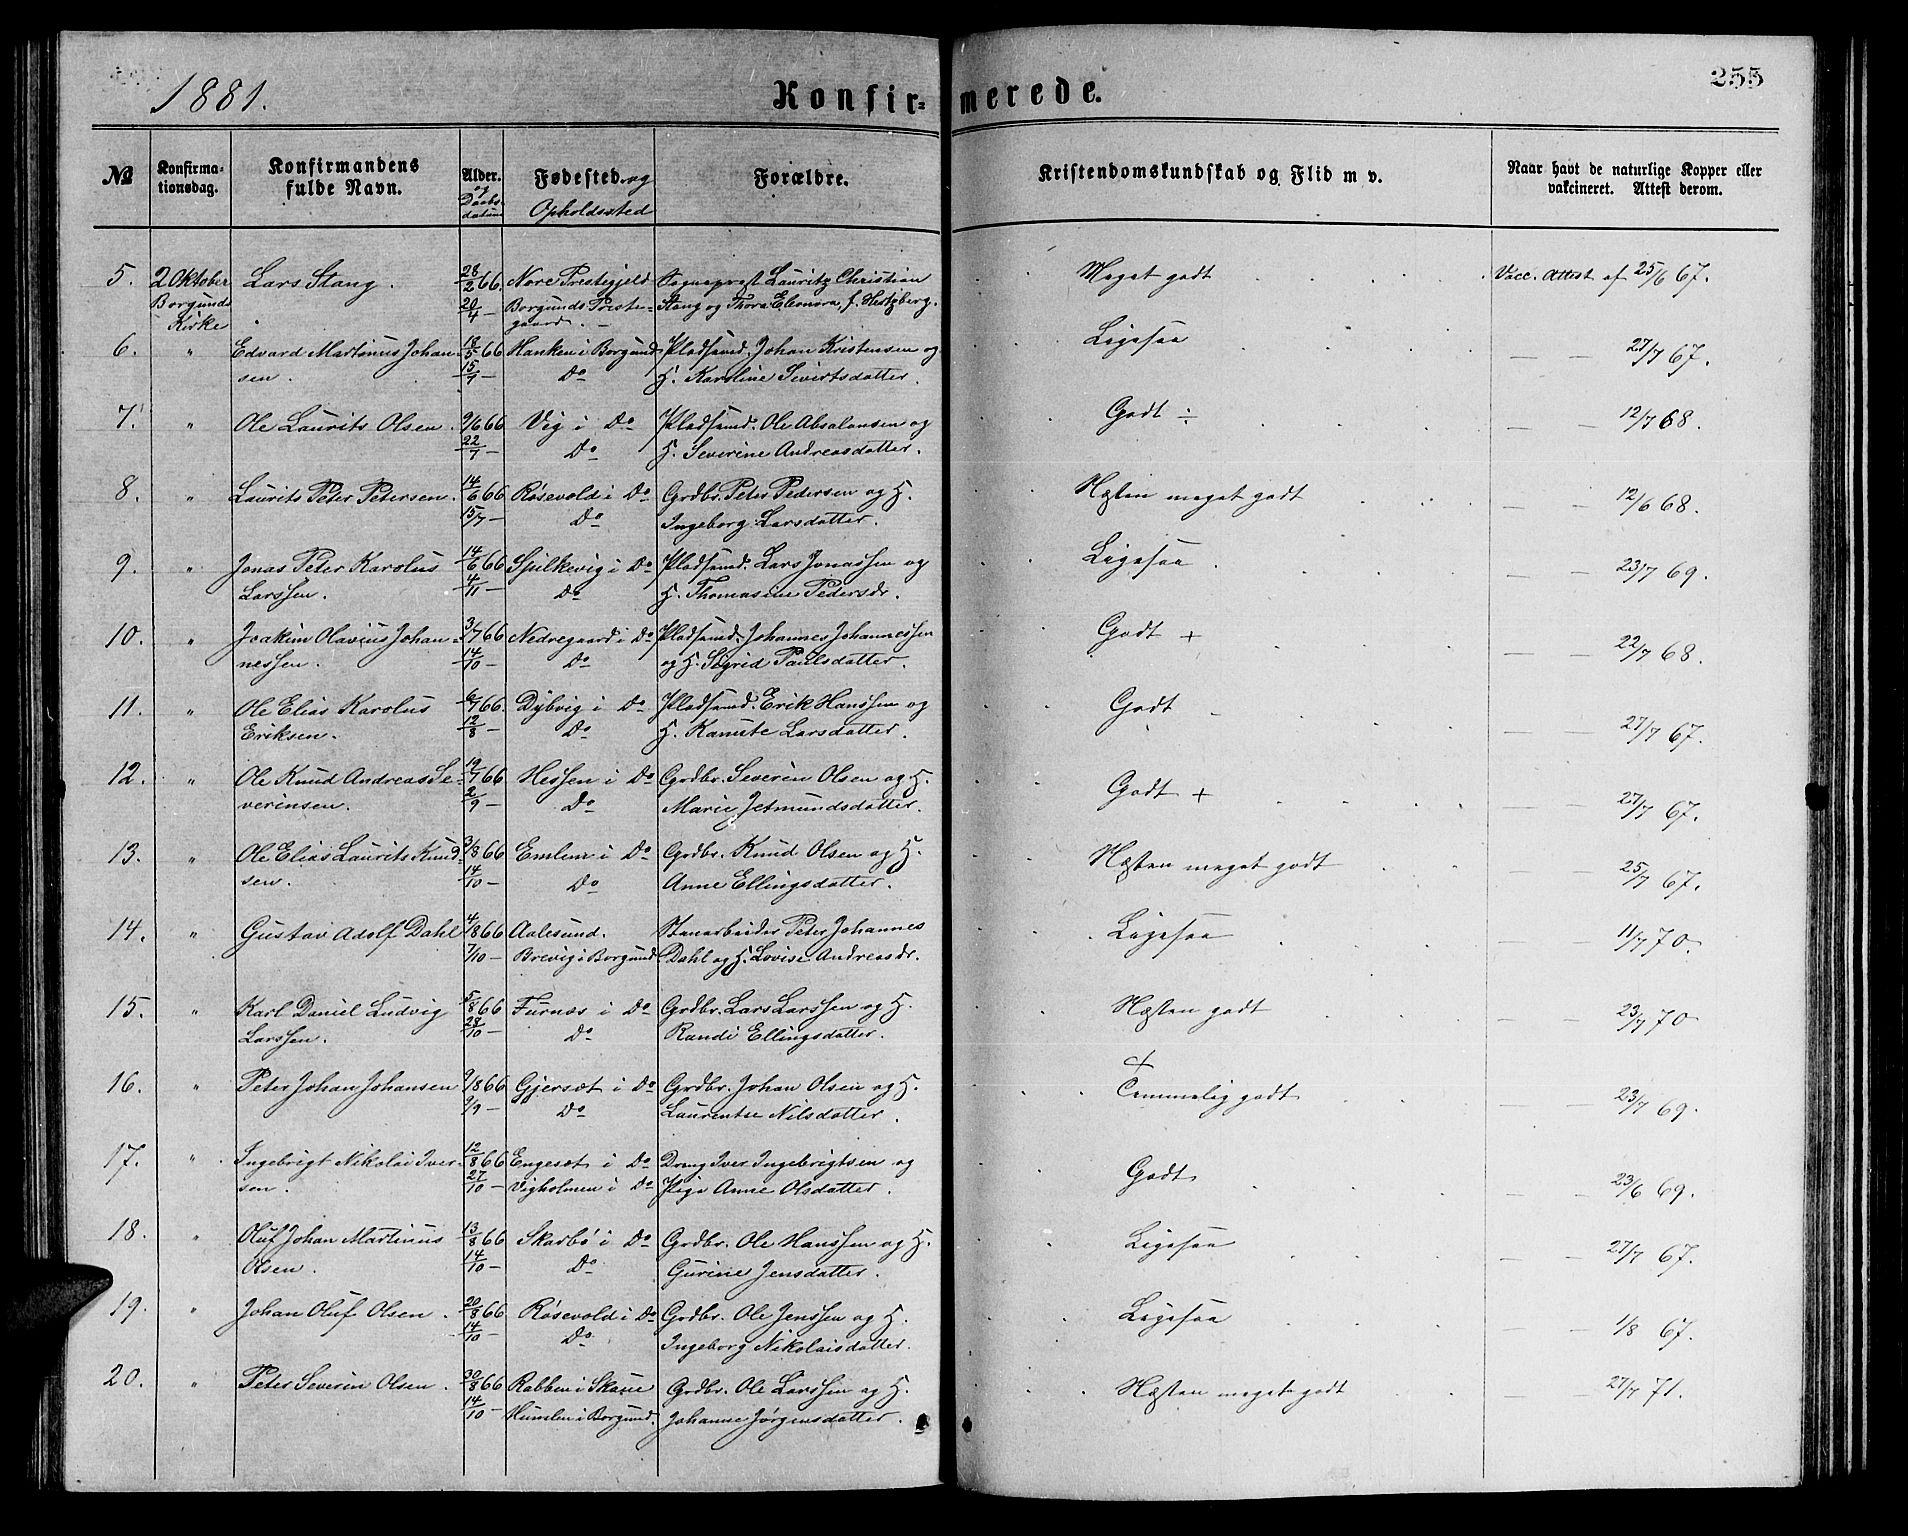 1881.
Konfir- merede.
255
No
Konfirma-
tionsdag.
Konfirmandens
fulde Navn.
Alder.
og
Daabs-
datum
Fødested og
Opholdssted
Forældre.
Kristendomskundskab og Flid m v.
Naar havt de naturlige Kopper eller
vakcineret. Attest derom.
5. 2 Oktober Lars Stang. 28/2 66. Nore Prestegjeld Sogneprest Lauritz Christian Meget godt Vacc. Attest af 25/6 67.
Borgunds 20/4 — Borgunds Preste- Stang og Thora Eleonora, f. Hertzberg.
Kirke gaard. —
6. " Edvard Martinus Johan- 18/5 66 Hanken i Borgund Pladsmd. Johan Kristensen og Ligesaa — — 27/7 67.
sen. 15/7 — Do H. Karoline Sivertsdatter.
7. " Ole Laurits Olsen. 9/6 66 Vig i Do Pladsmd. Ole Absalonsen og Godt ÷ — — 12/7 68.
22/7 — Do H. Severine Andreasdatter.
8. " Laurits Peter Petersen. 14/6 66 Røsevold i Do Grdbr. Peter Pedersen og H. Næsten meget godt — — 12/6 68.
15/7 — Do Ingeborg Larsdatter.
9. " Jonas Peter Karolus 14/6 66 Spilkevig i Do Pladsmd. Lars Jonassen og Ligesaa — — 23/7 69.
Larssen. 4/11 — Do H. Thomasine Pedersdr.
10. " Joakim Olavius Johan- 3/7 66 Nedregaard i Do Pladsmd. Johannes Johannessen Godt + — — 22/7 68.
nessen. 14/10 — Do og H. Sigrid Paulsdatter.
11. " Ole Elias Karolus 6/7 66. Dybvig i Do Pladsmd. Erik Hanssen og Godt — — 27/7 67.
Eriksen. 12/8 — Do H. Kanute Larsdatter.
12. " Ole Knud Andreas Se- 19/7 66 Hessen i Do Grdbr. Severin Olsen og H. Godt + — — 27/7 67.
verinsen. 2/9 — Do Marie Jetmundsdatter.
13. " Ole Elias Laurits Knud- 3/8 66 Emlem i Do Grdbr. Knud Olsen og H. Næsten meget godt — — 25/7 67.
sen. 14/10 — Do Anne Ellingsdatter.
14. " Gustav Adolf Dahl 4/8 66 Aalesund. Stenarbeider Peter Johannes Ligesaa — — 11/7 70.
7/10 — Brevig i Borgund Dahl og H. Lovise Andreasdr.
15. " Karl Daniel Ludvig 5/8 66 Furnæs i Do Grdbr. Lars Larssen og H. Næsten godt — — 23/7 70
Larssen. 28/10 — Do Randi Ellingsdatter.
16. " Peter Johan Johansen 9/8 66 Gjersæt i Do Grdbr. Johan Olsen og H. + Temmelig godt — — 23/7 69.
9/9 — Do Laurentse Nilsdatter.
17. " Ingebrigt Nikolai Iver- 12/8 66 Engesæt i Do Dreng Iver Ingebrigtsen og Godt — — 23/6 69.
sen. 27/10 — Vigholmen i Do Pige Anne Olsdatter.
18. " Oluf Johan Martinus 13/8 66 Skarbø i Do Grdbr. Ole Hanssen og H. Ligesaa — — 27/7 67.
Olsen. 14/10 — Do Gurine Jensdatter.
19. " Johan Oluf Olsen. 20/8 66 Røsevold i Do Grdbr. Ole Jenssen og H. Ligesaa — — 1/8 67.
14/10 — Do Ingeborg Nikolaisdatter.
20. " Peter Severin Olsen. 30/8 66 Rabben i Skaue Grdbr. Ole Larssen og H. Næsten meget godt — — 27/7 71.
14/10 — Humlen i Borgund. Johanne Jørgensdatter.